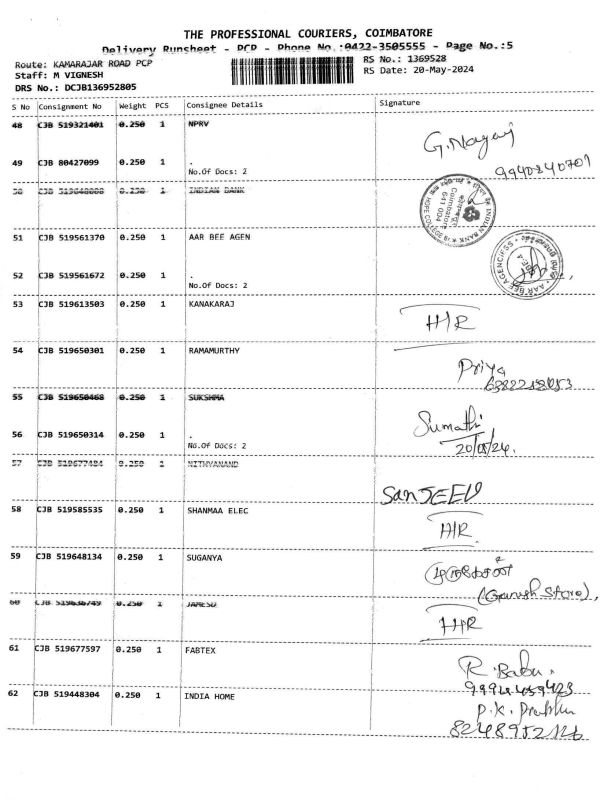 THE PROFESSIONAL COURIERS, COIMBATORE
Delivery Runsheet - PCP - Phone No.:0422-3505555 - Page No.:5
Route: KAMARAJAR ROAD PCP
RS No.: 1369528
Staff: M VIGNESH
RS Date: 20-May-2024
DRS No.: DCJB136952805
S No Consignment No Weight PCS Consignee Details Signature
48 CJB 519321401 0.250 1 NPRV
G. Nagaraj
9940840701
49 CJB 80427099 0.250 1 .
No.Of Docs: 2
50 CJB 0.250 1 INDIAN BANK
INDIAN BANK
Coimbatore
641 004
51 CJB 519561370 0.250 1 AAR BEE AGEN
AAR BEE AGENCIESS
52 CJB 519561672 0.250 1 .
No.Of Docs: 2
53 CJB 519613503 0.250 1 KANAKARAJ
H/R
54 CJB 519650301 0.250 1 RAMAMURTHY
Priya
55 CJB 519650468 0.250 1 SUKSHMA
Sumathi
20/05/24.
56 CJB 519650314 0.250 1 .
No.Of Docs: 2
57 CJB 519677484 0.250 1 NITHYANAND
SanJEEV
58 CJB 519585535 0.250 1 SHANMAA ELEC
H/R
59 CJB 519648134 0.250 1 SUGANYA
முருகேசன்
(Ganesh Store),
60 CJB 519636749 0.250 1 JAMESD
H/R
61 CJB 519677597 0.250 1 FABTEX
R. Babu.
62 CJB 519448304 0.250 1 INDIA HOME
P.K. Prabhu